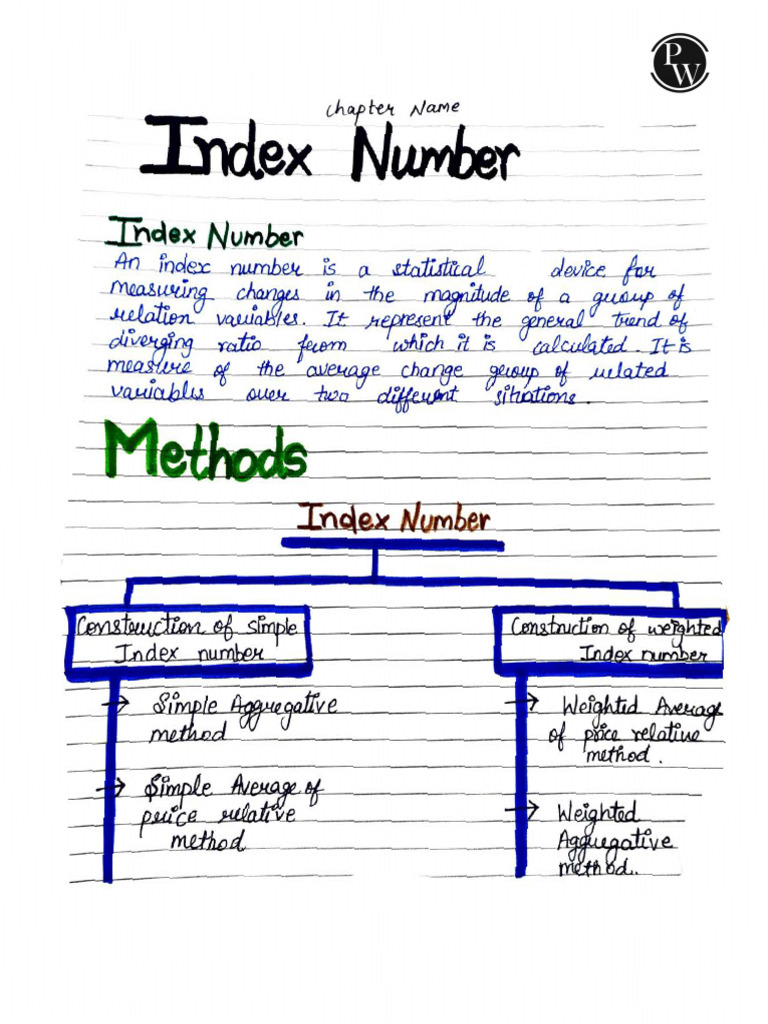 PW
Chapter Name
Index Number
Index Number
An index number is a statistical device for
measuring changes in the magnitude of a group of
relation variables. It represent the general trend of
diverging ratio from which it is calculated. It is
measure of the average change group of related
variables over two different sitations.
Methods
Index Number
Construction of simple
Index number
→ Simple Aggregative
method
→ Simple Average of
price relative
method
Construction of weighted
Index number
→ Weighted Average
of price relative
method.
→ Weighted
Aggregative
method.